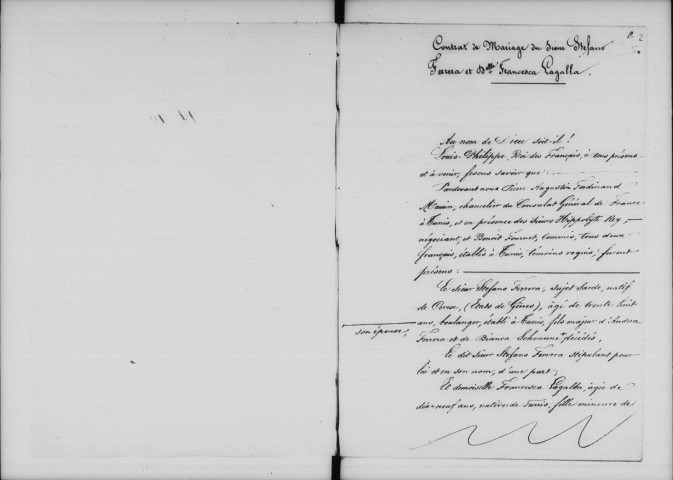 Contrat de Mariage du Sieur Stefano
Ferrera et Dlle Francesca Gagalla.
Au nom de Dieu soit-il!
Louis-Philippe, Roi des Français, à tous présens
et à venir, fesons savoir que:
Pardevant nous Pierre Augustin Ferdinand
chancelier du Consulat Général de France
à Tunis, et en présence des Sieurs Hippolyte Rey,
négociant, et Benoit Fournet, commis, tous deux
français, établis à Tunis, témoins requis, furent
présens:
Le Sieur Stefano Ferrera, sujet sarde, natif
de (États de Gênes), âgé de trente huit
ans, boulanger, établi à Tunis, fils majeur d'Andrea
son épouse,
Ferrera et de Bianca décédés,
Le dit Sieur Stefano Ferrera stipulant pour
lui et en son nom, d'une part;
Et demoiselle Francesca Gagalla, âgée de
dix-neuf ans, native de Tunis, fille mineure de